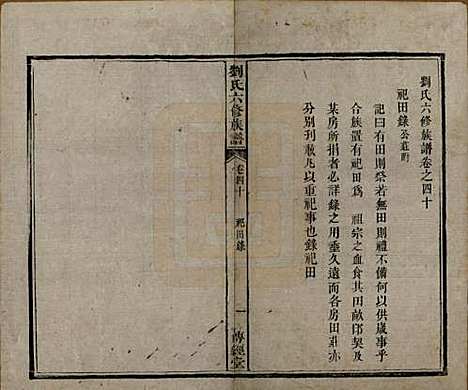 劉氏六修族譜卷之四十
祀田錄公莊附
記曰有田則祭若無田則禮不備何以供歲事乎
合族置有祀田爲 祖宗之血食其田畝邱契及
某房所捐者必詳錄之用垂久遠而各房田莊亦
分別刊載凡以重祀事也錄祀田
劉氏六修族譜
卷四十
祀田錄
一
傳經堂